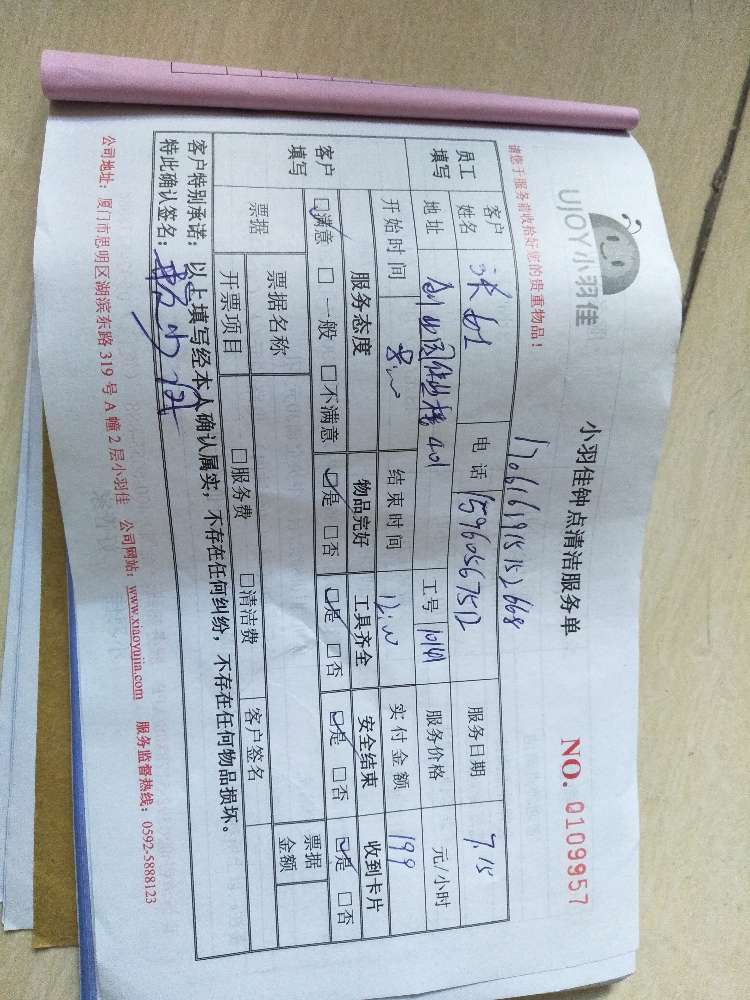 UJOY小羽佳
小羽佳钟点清洁服务单
NO. 0109957
请您于服务前收拾好您的贵重物品！
17061619151526668
员工填写
客户姓名
电话 15960567512
服务日期 7.15
地址
401
工号 10141
服务价格 元/小时
开始时间 8:00
结束时间 12:00
实付金额 199
客户填写
服务态度 物品完好 工具齐全 安全结束 收到卡片
☑满意 □一般 □不满意 ☑是 □否 ☑是 □否 ☑是 □否 ☑是 □否
票据
票据名称
客户签名
票据金额
开票项目 □服务费 □清洁费
客户特别承诺：以上填写经本人确认属实，不存在任何纠纷，不存在任何物品损坏。
特此确认签名：
公司地址：厦门市思明区湖滨东路 319 号 A 幢 2 层小羽佳 公司网站：www.xiaoyujia.com 服务监督热线：0592-5888123